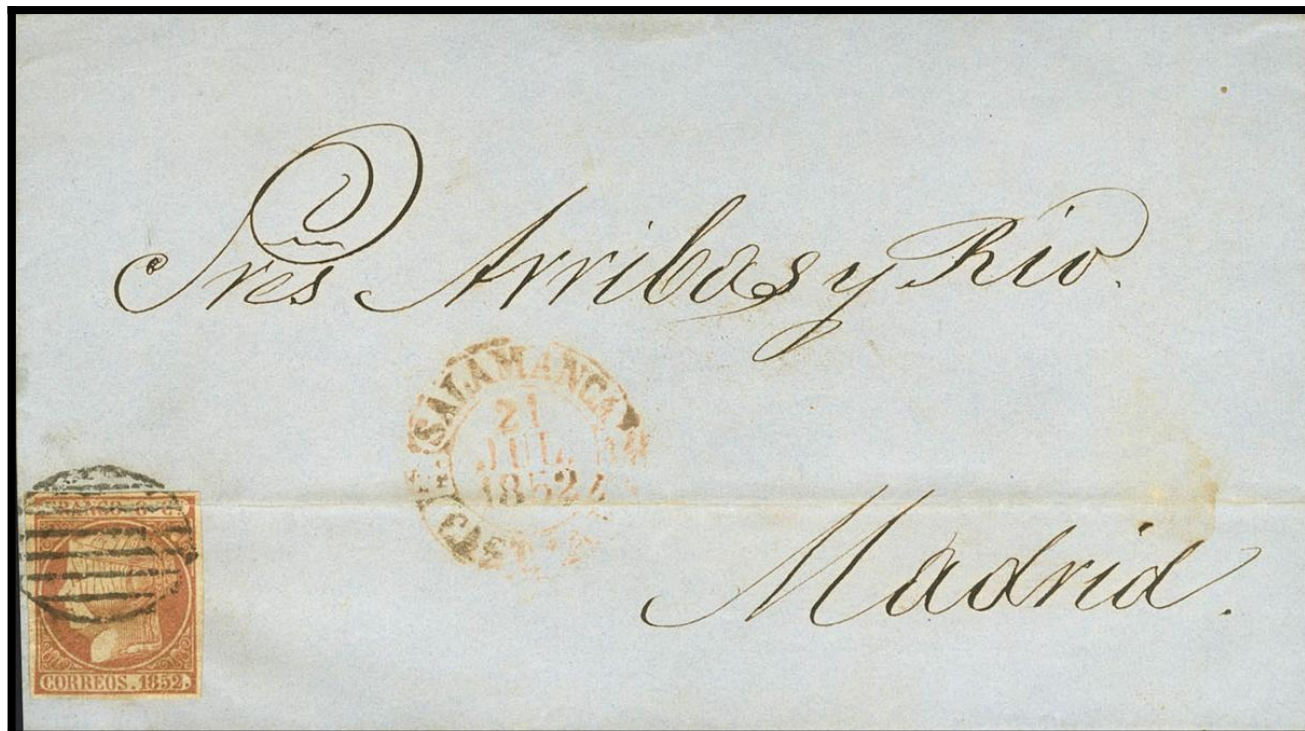 Sres Arribas y Rio.
SALAMANCA
21
JUL
1852
Madrid.
CORREOS. 1852.